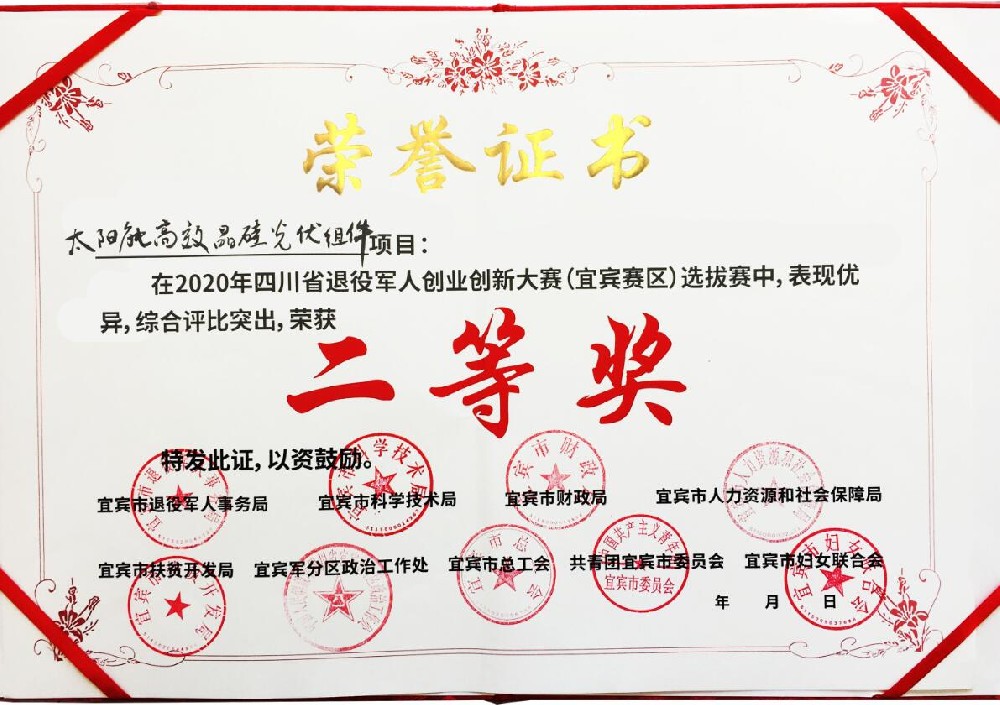 荣誉证书
太阳能高效晶硅光伏组件项目：
在2020年四川省退役军人创业创新大赛（宜宾赛区）选拔赛中，表现优
异，综合评比突出，荣获
二等奖
特发此证，以资鼓励。
宜宾市退役军人事务局 宜宾市科学技术局 宜宾市财政局 宜宾市人力资源和社会保障局
宜宾市扶贫开发局 宜宾军分区政治工作处 宜宾市总工会 共青团宜宾市委员会 宜宾市妇女联合会
年 月 日